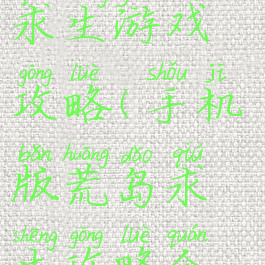 求生游戏
gōng lüè shǒu jī
攻略(手机
bǎn huāng dǎo qiú
版荒岛求
shēng gōng lüè quán
生攻略全